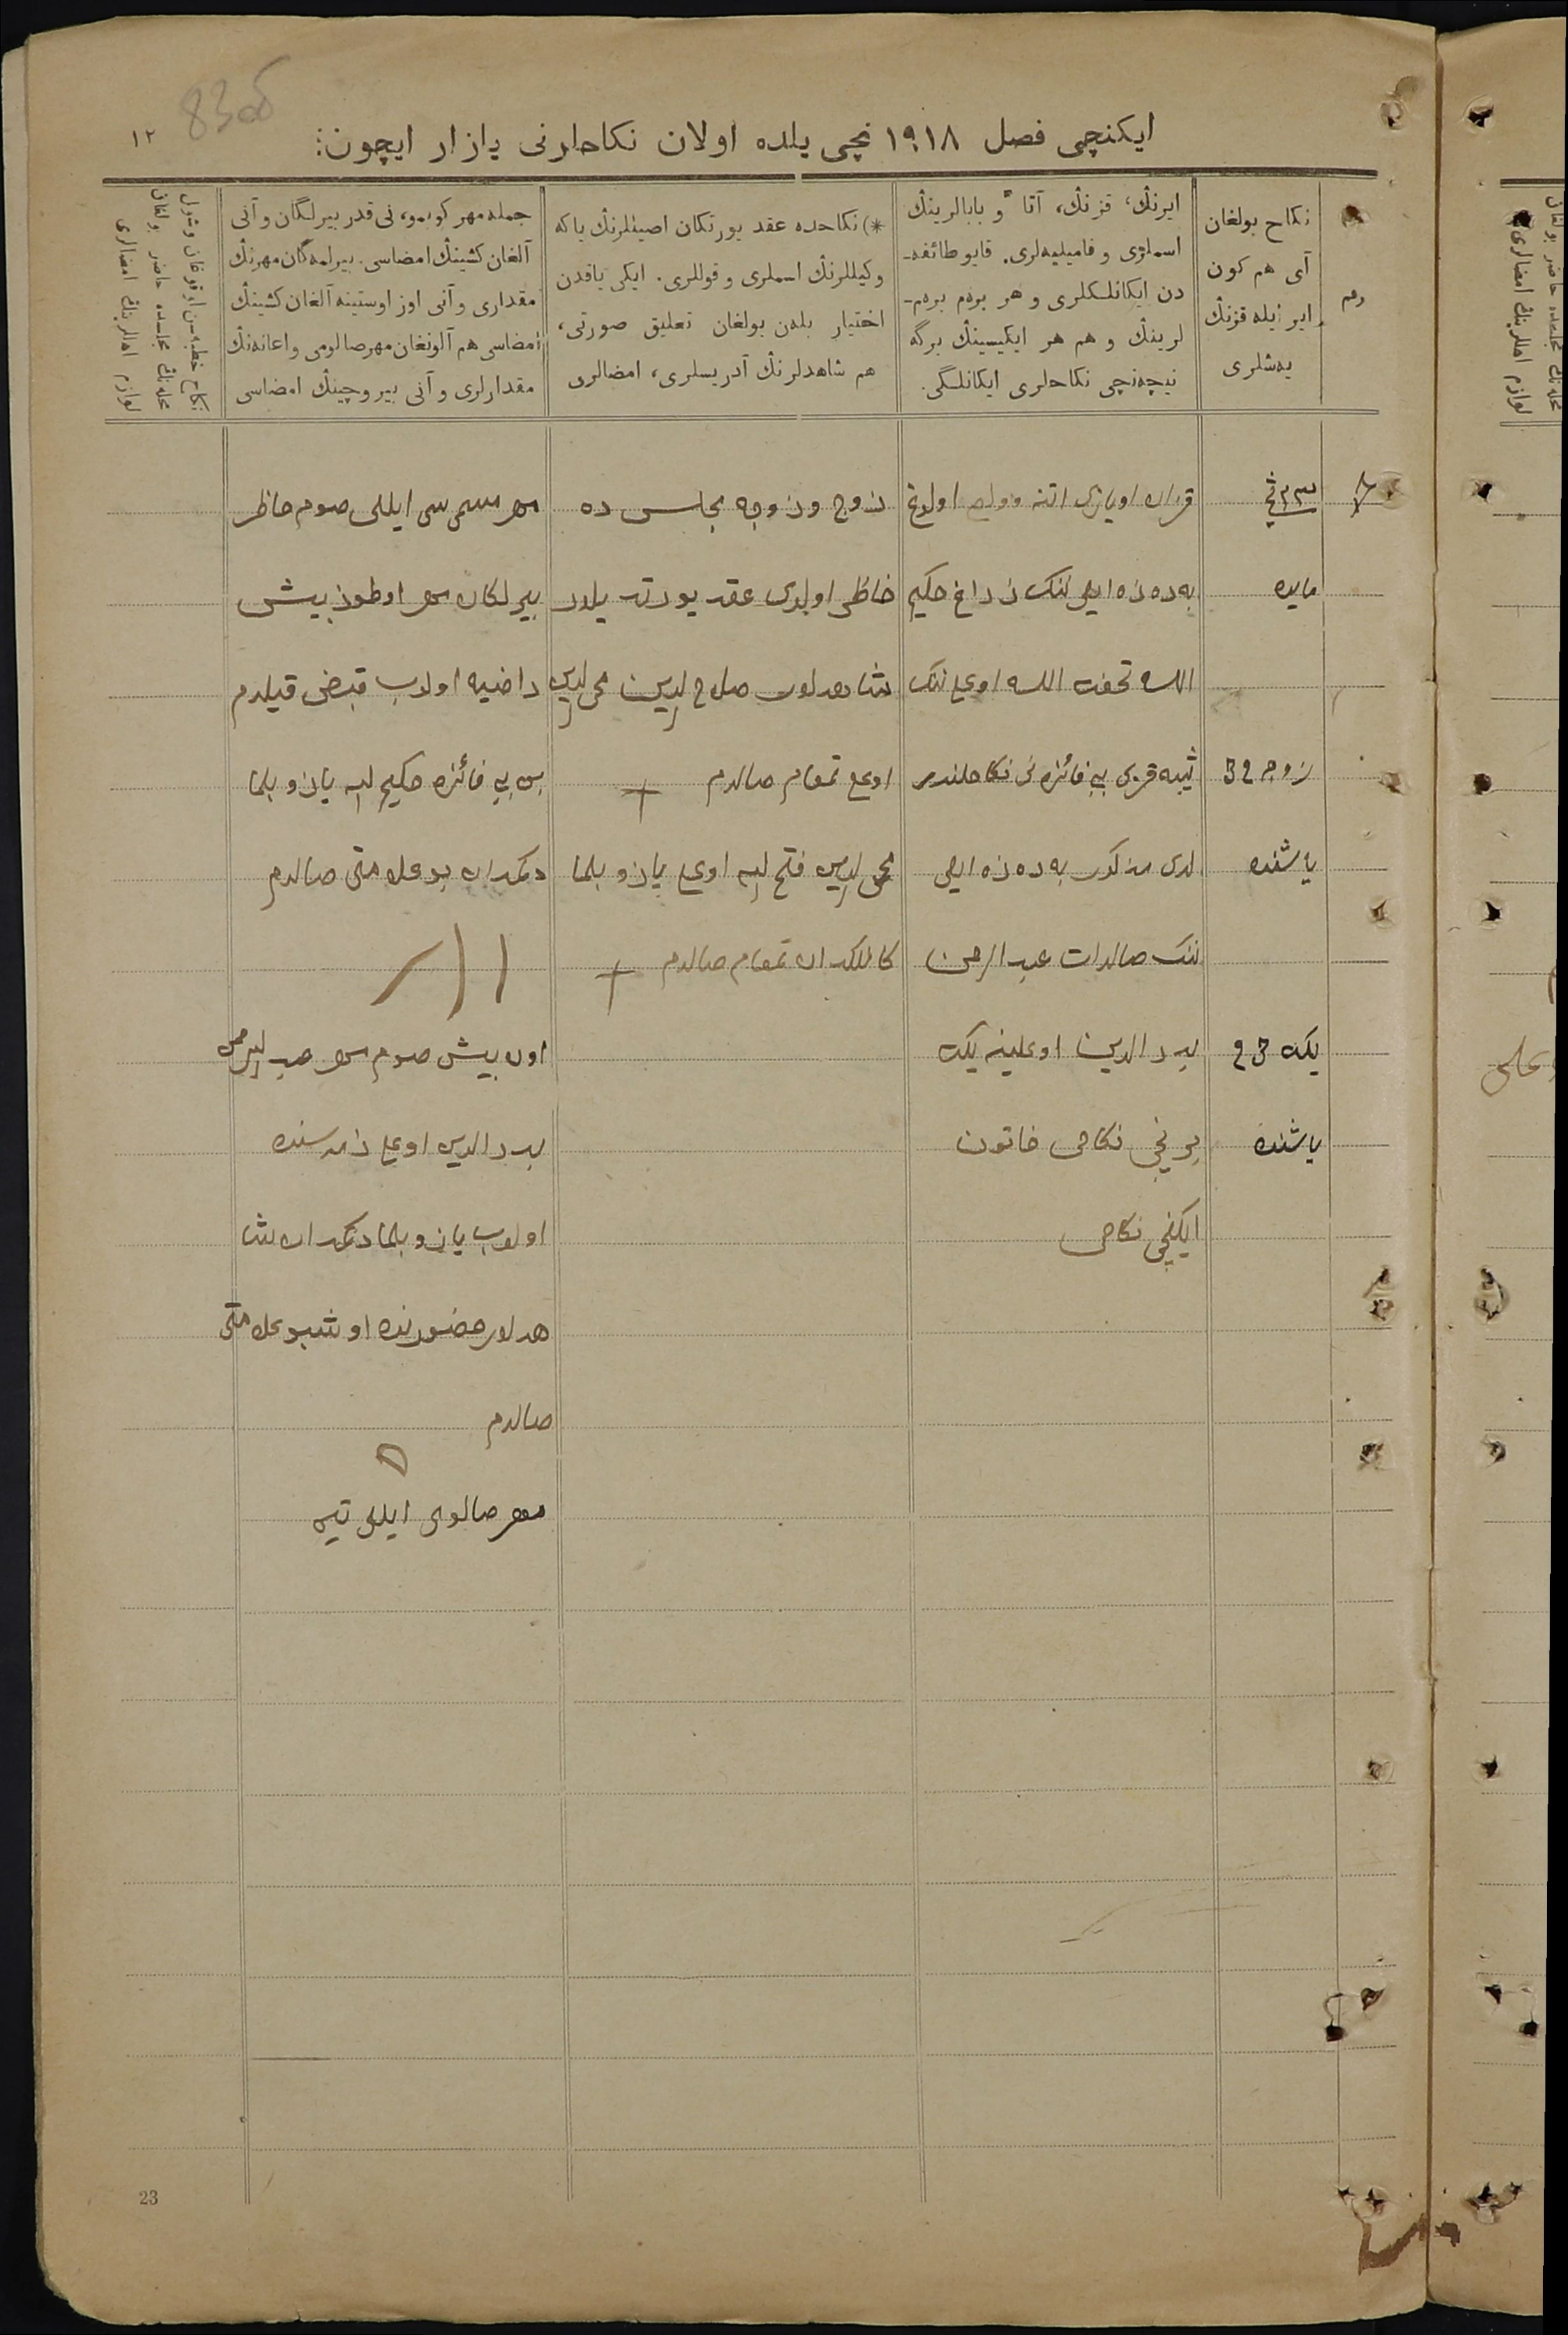 83об
١٢
ایکنچی فصل ١٩١٨ نچی یلده اولان نکاحلرنی یازار ایچون:
رقم
نکاح بولغان
آی هم کون
ایر ایله قزنڭ
یەشلری
ایرنڭ، قزنڭ، آتا و بابالرینڭ
اسملری و فامیلیەلری. قایو طائفه-
دن ایکانلکلری و هر برەم برەم-
لرینڭ و هم هر ایکیسینڭ برگە
نیچەنچی نکاحلری ایکانلگی.
*) نکاحده عقد یورتکان اصیللرنڭ یاکە
وکیللرنڭ اسملری و قوللری. ایکی یاقدن
اختیار بلەن بولغان تعلیق صورتی،
هم شاهدلرنڭ آدریسلری، امضالری
جمله مهر کوبمو، نی قدر بیرلگان و آنی
آلغان کشینڭ امضاسی. بیرلمەگان مهرنڭ
مقداری و آنی اوز اوستینه آلغان کشینڭ
امضاسی هم آلونغان مهر صالومی و اعانەنڭ
مقدارلری و آنی بیروچینڭ امضاسی
نکاح خطبەسن اوقوغان و شول
محلەنڭ مجلسده حاضر بولغان
لوازم اهللرینڭ امضالری
مایده
زوج
32
یاشنده
یکت
یاشنده
قزان اویازی اتنه اولوغ
الله تحفت الله اوغلی ننک
ثیبه قزی بی فائزه نی نکاحلندر
لدی مذکور
ننک صالدات عبدالرحمن
بدرالدین اوغلینه یکت
برنچی نکاحی خاتون
ایکنچی نکاحی
زوج و زوجه مجلس ده
اولدی عقد یورتدیلار
شاهدلر صلاح الدین محی الدین
اوغلی تمغام صالدم
محی الدین فتح الله اوغلی یازو بلما
کانلکدان تمغام صالدم
مهر مسمی سی ایللی صوم حاظر
بیرلکان مهر اوطوز بیش
راضیه اولوب قبض قیلدم
بی بی فائزه حکیم الله یازو بلما
دکمدان بو علامتی صالدم
اون بیش صوم مهر عبدالرحمن
بدرالدین اوغلی ذمه سنده
اولوب یازو بلمادکمدان شا
هدلر حضورنده اوشبو علامتی
صالدم
مهر صالومی ایللی تین
23